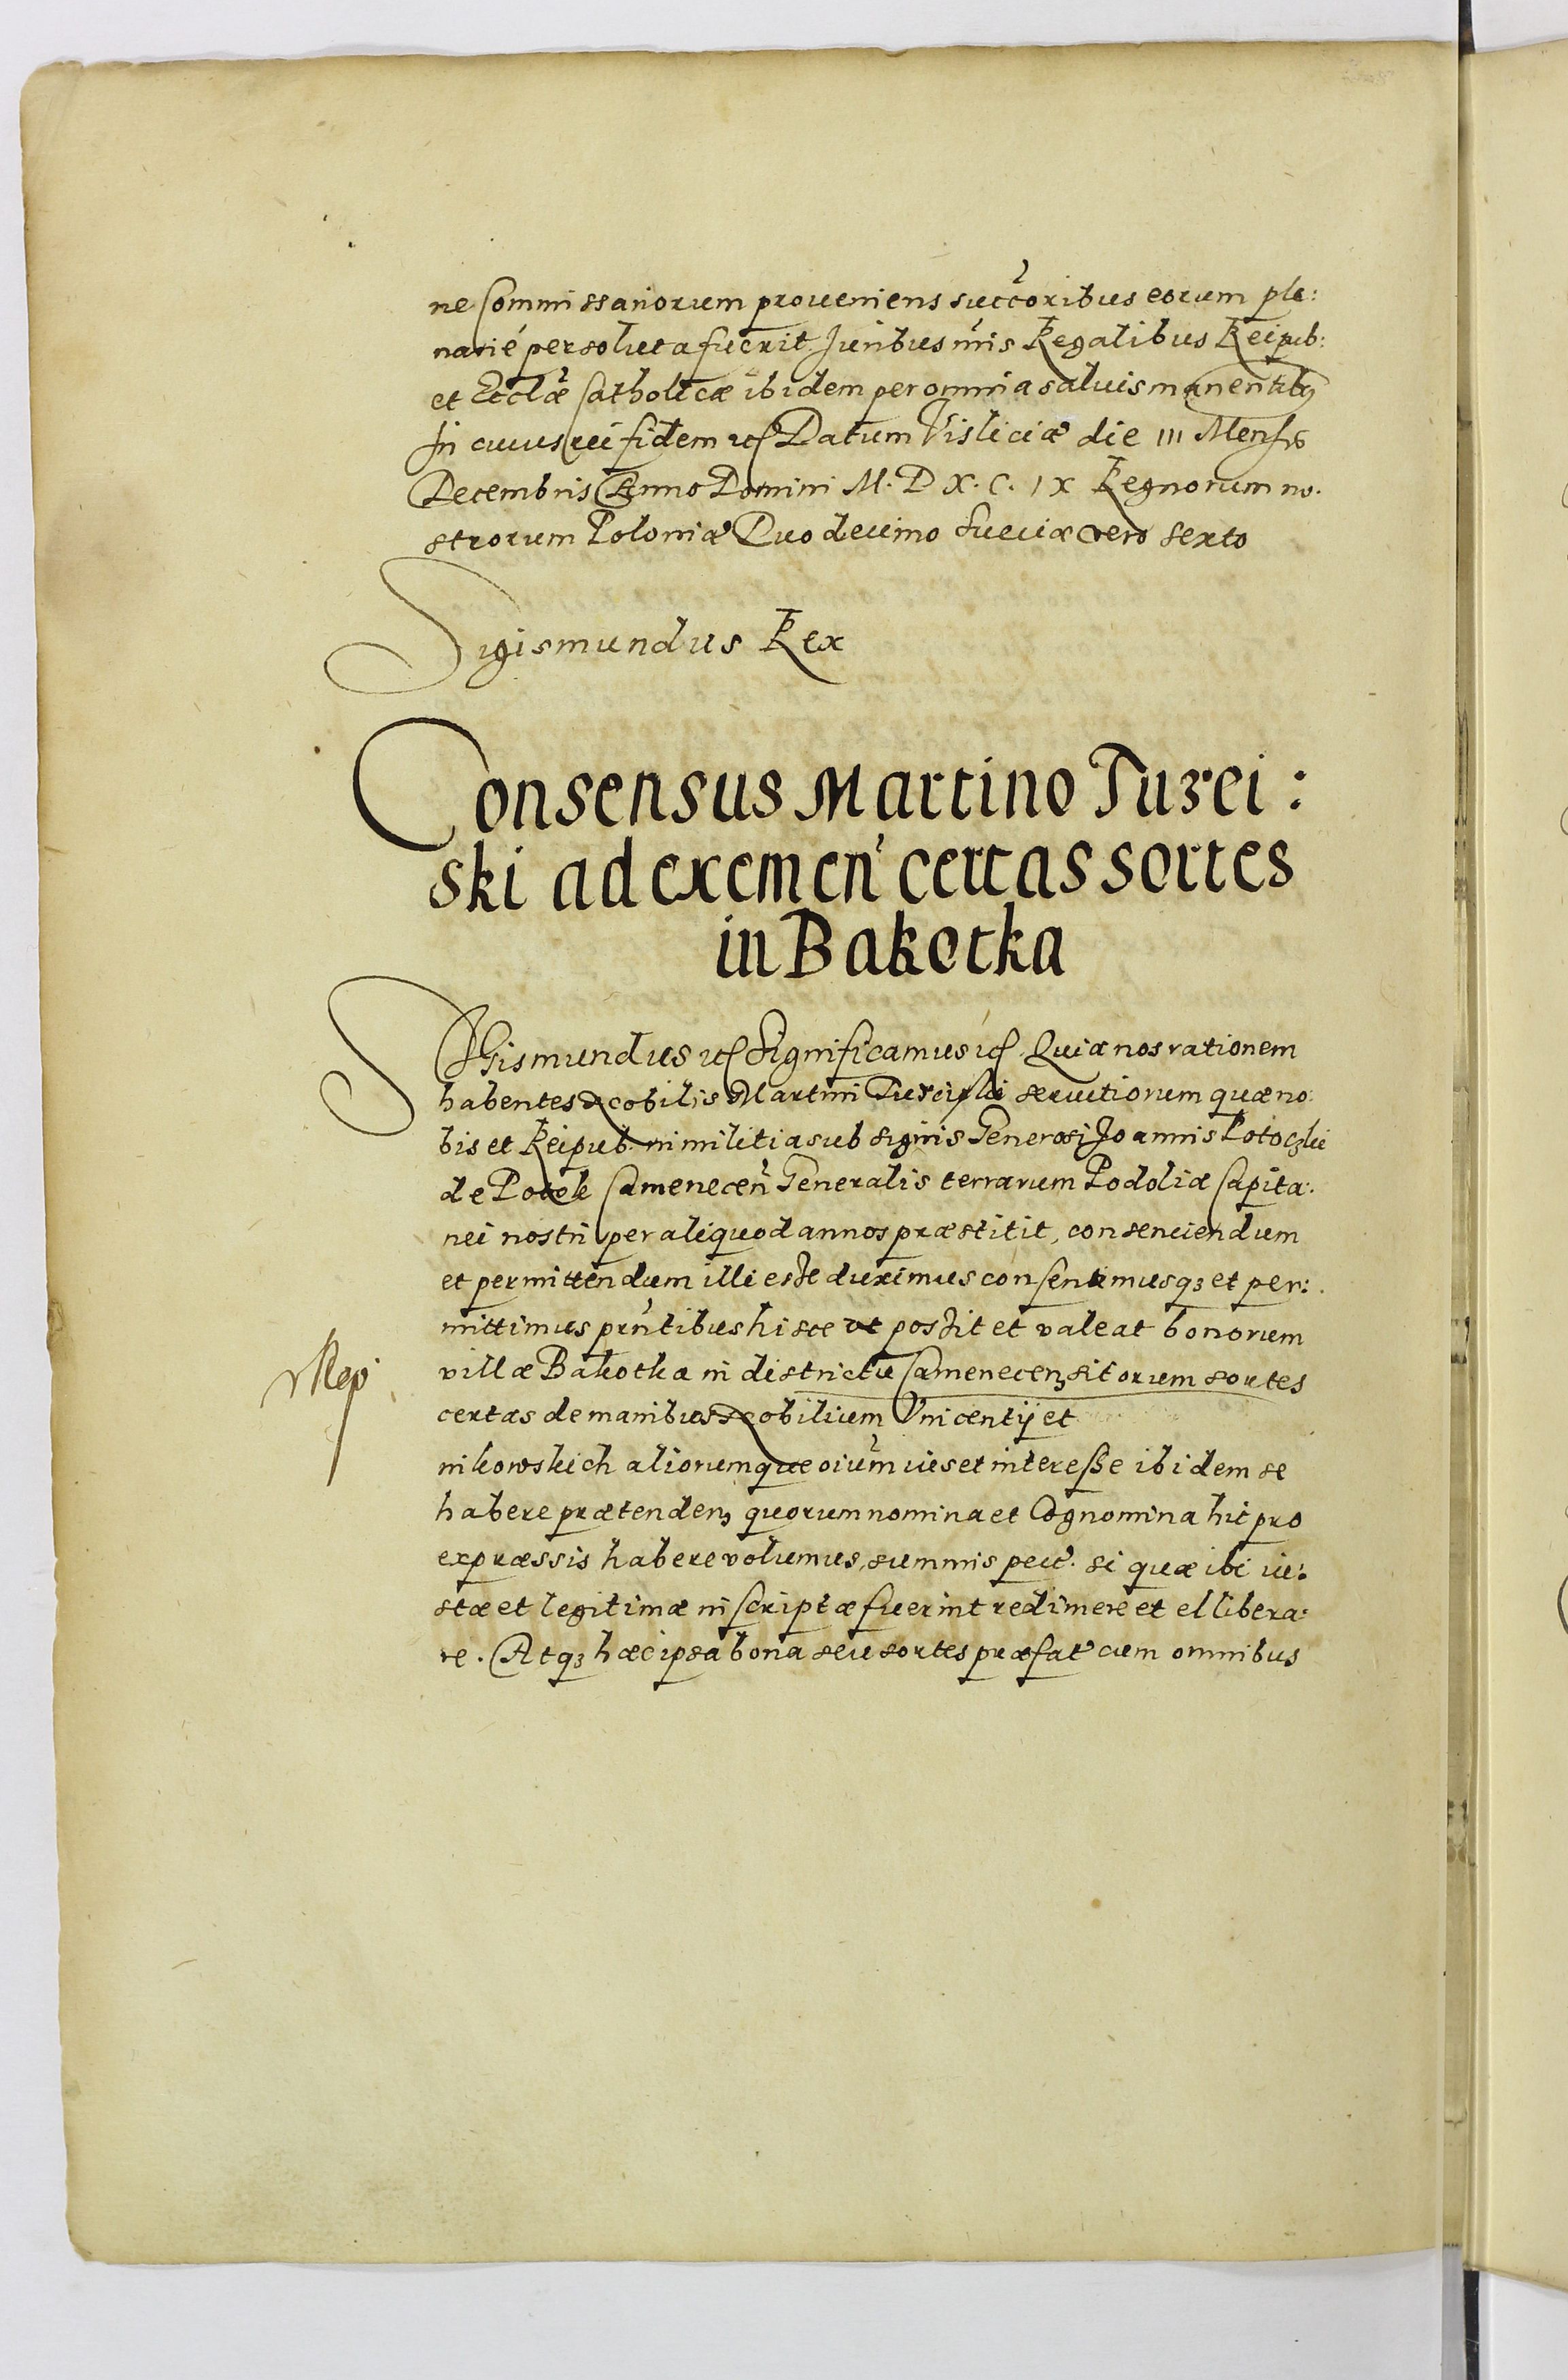 ne Commissariorum proueniens succoribus eorum ple:
narié persoluta fuerit Juribus nris Regalibus Reipub:
et Ecclæ Catholicæ ibidem per omnia saluis manentibq
In cuius rei fidem etc Datum Visliciæ die III Mensis
Decembris Anno Domini M. D X. C. IX Regnorum no.
strorum Poloniæ Duodecimo Sueciæ vero sexto
Sigismundus Rex
Consensus Martino Turei:
ski ad exemen certas sortes
in Bakotka
SIGismundus etc Significamus etc Quia nos rationem
habentes Nobilis Martini seruitiorum quæ no:
bis et Reipub. in militia sub signis Generosi Joannis Potoczki
de Potok Camenecen Generalis terrarum Podoliæ Capita:
nei nostri per aliquod annos præstitit, consenciendum
et permittendum illi esse duximus consentimusq3 et per:
mittimus prntibus hisce vt possit et valeat bonorum
villæ Bakotka in districtu Camenecen3 sitorum sortes
certas de manibus Nobilium Vincentij et
nikowskich aliorumque oium ius et interesse ibidem se
habere prætenden3 quorum nomina et Cognomina hic pro
expræssis habere volumus, summis pecu. si quæ ibi iu:
stæ et legitimæ inscriptæ fuerint redimere et elibera:
re. Atq3 hæc ipsa bona seu sortes præfat cum omnibus